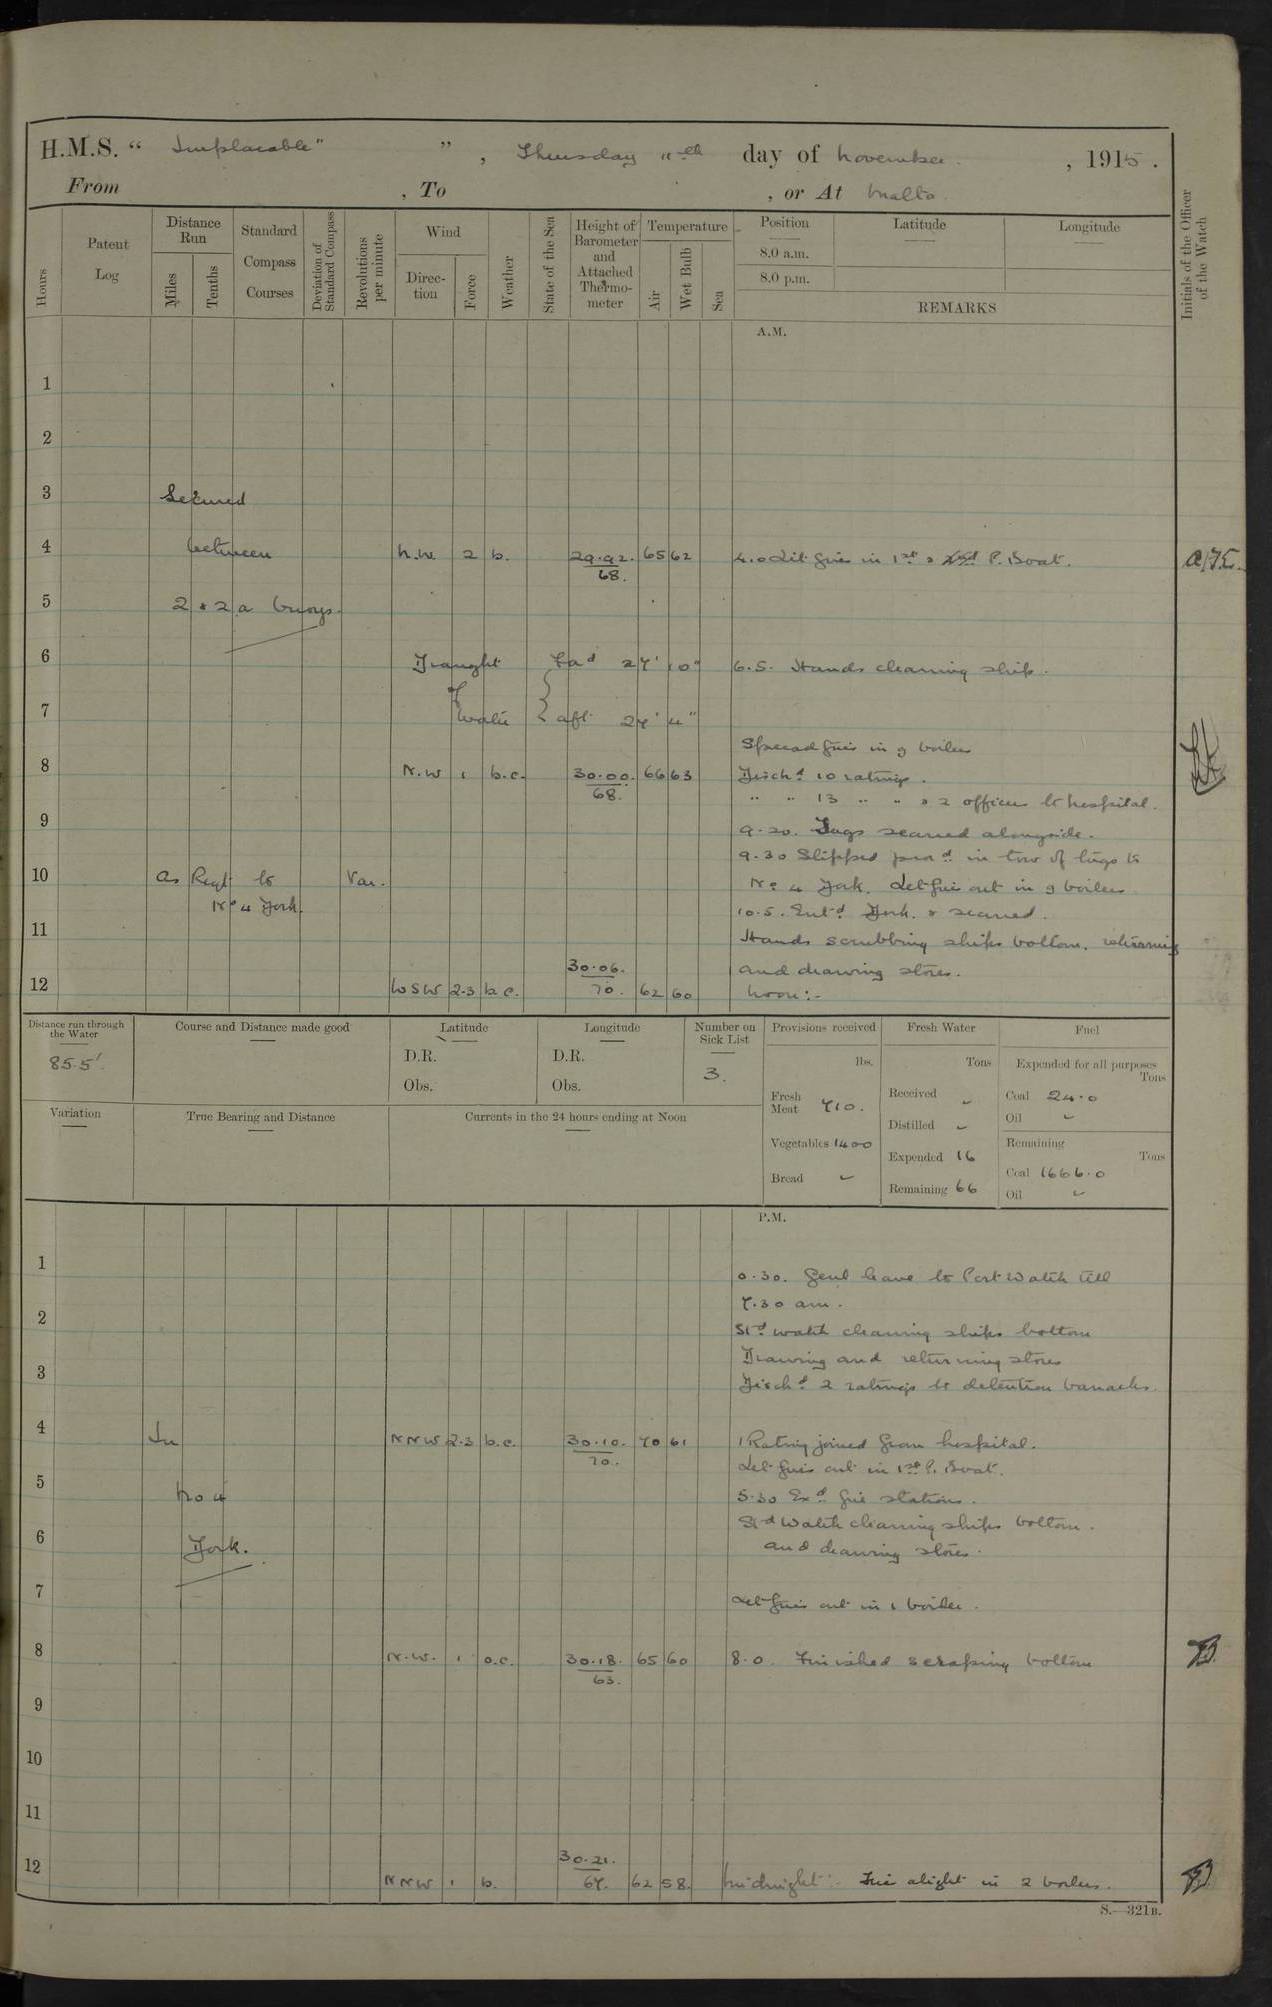 H.M.S. “ Implacable” ” , Thursday 11th day of November , 1915 .
From , To , or At Malta
Hours
Patent Log
Distance Run
Miles
Tenths
Standard Compass Courses
Deviation of Standard Compass
Revolutions per minute
Wind
Direc-tion
Force
Weather
State of the Sea
Height of Barometer and Attached Thermo-meter
Temperature
Air
Wet Bulb
Sea
Position
8.0 a.m.
8.0 p.m.
Latitude
Longitude
REMARKS
Initials of the Officer of the Watch
A.M.
1
2
3 Secured
4 between N.W. 2 b. 29.92. 65 62 4.0 Lit fires in 1st & 2nd P. Boat.
68.
5 2 & 2a buoys.
6 Draught Fad 27' 10" 6.5. Hands cleaning ship.
of
7 Water aft 27' 4"
Spread fires in 9 boilers
8 N.W 1 b.c. 30.00. 66 63 Disch.d 10 ratings.
68. " " 13 " " & 2 officers to hospital.
9 9.20. Tugs secured alongside.
9.30 Slipped proc.d in tow of tugs to
10 As Reqt to Var. No 4 Dock. Let fires out in 9 boilers
No 4 Dock. 10.5. Entd. Dock. & secured.
11 Hands scrubbing ships bottom. returning
30.06. and drawing stores.
12 WSW 2.3 b.c. 70. 62 60 Noon:-
Distance run through the Water
85.5'
Course and Distance made good
Latitude
D.R.
Obs.
Longitude
D.R.
Obs.
Number on Sick List
3.
Provisions received
lbs.
Fresh Meat 710.
Vegetables 1400
Bread
Fresh Water
Tons
Received
Distilled
Expended 16
Remaining 66
Fuel
Expended for all purposes
Tons
Coal 24.0
Oil
Remaining
Tons
Coal 1666.0
Oil
Variation
True Bearing and Distance
Currents in the 24 hours ending at Noon
P.M.
1 0.30. Genl leave to Port Watch till
7.30 am.
2 Std watch cleaning ships bottom
Drawing and returning stores
3 Disch.d 2 ratings to detention barracks.
4 In NNW 2.3 b.c. 30.10. 70 61 1 Rating joined from hospital.
70. Let fires out in 1st P. Boat.
5 No 4 5.30 Exd fire stations.
Std Watch cleaning ships bottom.
6 Dock. and drawing stores.
7 Let fires out in 1 boiler.
8 N.W. 1 o.c. 30.18. 65 60 8.0. Finished scraping bottom
63.
9
10
11
30.21.
12 NNW 1 b. 67. 62 58. Midnight:- Fires alight in 2 boilers.
S.—321B.